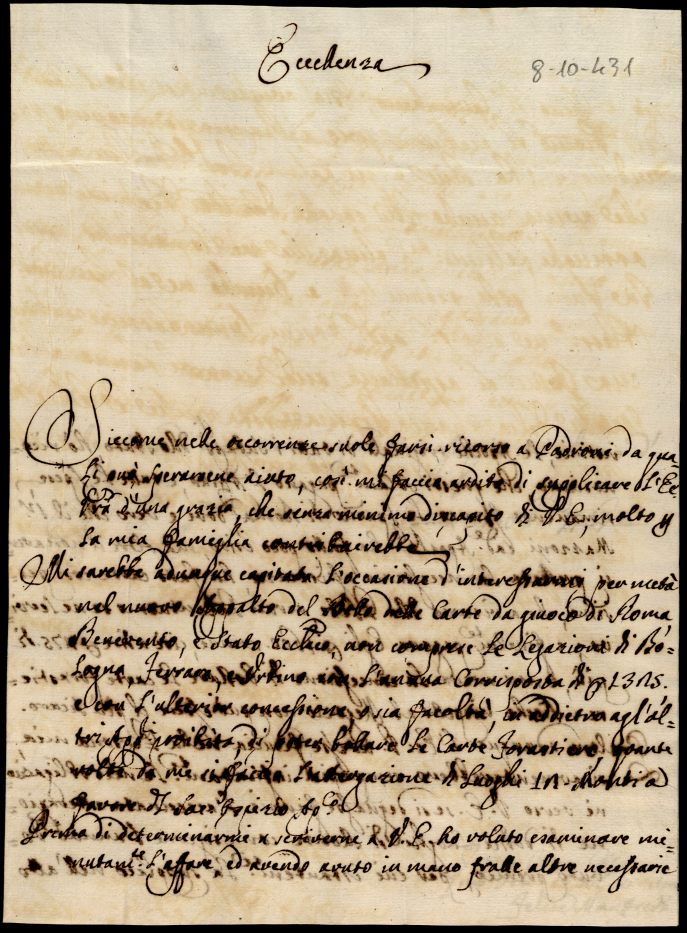 Eccellenza
8-10-431
Siccome nelle occorrenze suole farsi ricorso a Padroni da qua-
li può sperarsene aiuto, così mi faccio ardito di supplicare l'Ec
Vrã d'una grazia, che senza minimo discapito di V. E. molto p
la mia famiglia contribuirebbe
Mi sarebbe adunque capitata l'occasione d'interessarmi per metà
nel nuovo Appalto del Bollo delle Carte da giuoco di Roma
Benevento, e Stato Eccłico, non comprese le Legazioni di Bo-
logna Ferrara, e Urbino con l'annua Corrisposta di 1325.
e con l'ulterior concessione, o sia facoltà, in addietro agl'al-
tri proibita, di poter bollare le Carte Forastiere, quante
volte da me si faccia l'obbligazione di Luoghi 12 Monti a
favore
Prima di determinarmi a scriverne a V. E. ho voluto esaminare mi-
nutam.e l'affare, ed avendo avuto in mano fralle altre necessarie